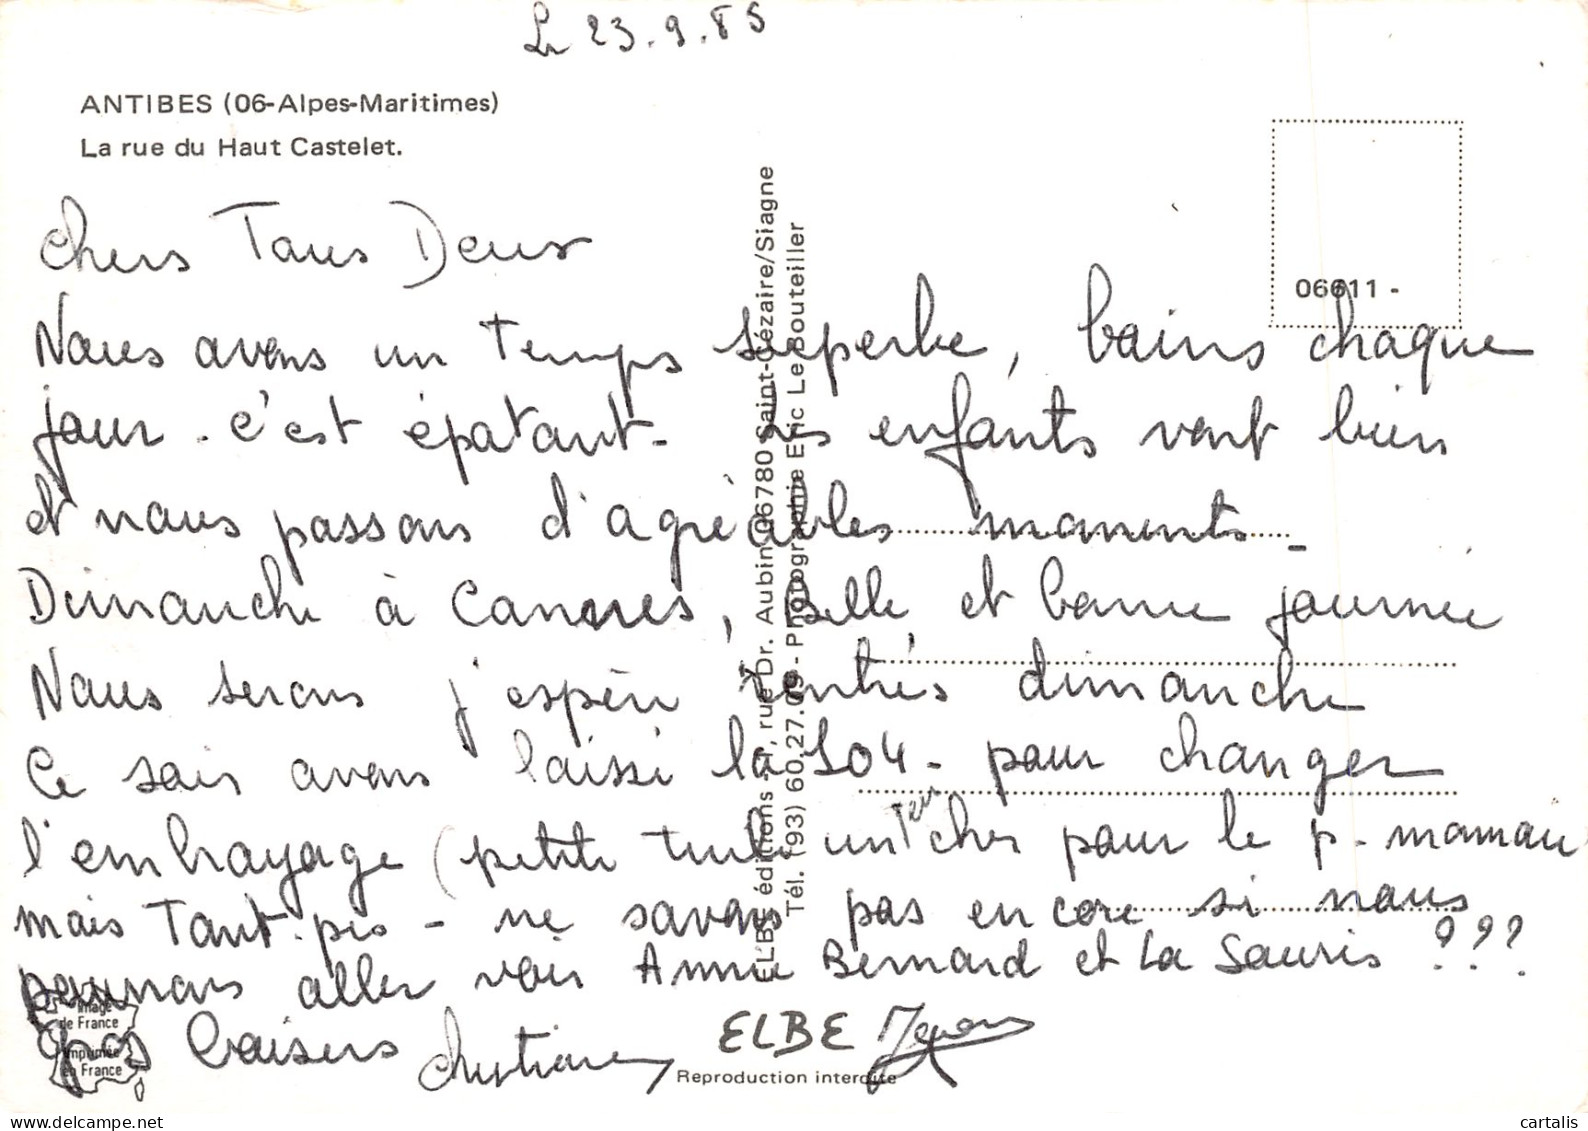 Le 23.9.85
ANTIBES (06-Alpes-Maritimes)
La rue du Haut Castelet.
06611 -
Chers Tous Deux
Nous avons un temps superbe, bains chaque
jour. c'est épatant - Les enfants vont bien
et nous passons d'agréables moments -
Dimanche à Cannes, Belle et bonne journée
Nous serons j'espère rentrés dimanche
Ce soir avons laissé la 104 - pour changer
l'embrayage (petite tuile un peu cher pour le p. maman
mais Tant pis - ne savons pas encore si nous
pourrons aller voir Annie Bernard et La Souris ???
Gros baisers Christiane
ELBE éditions - , rue Dr. Aubin 06780 Saint-Cézaire/Siagne
Tél. (93) 60.27.09 - Photographie Eric Le Bouteiller
Image
de France
Imprimée
en France
ELBE
Reproduction interdite
cartalis